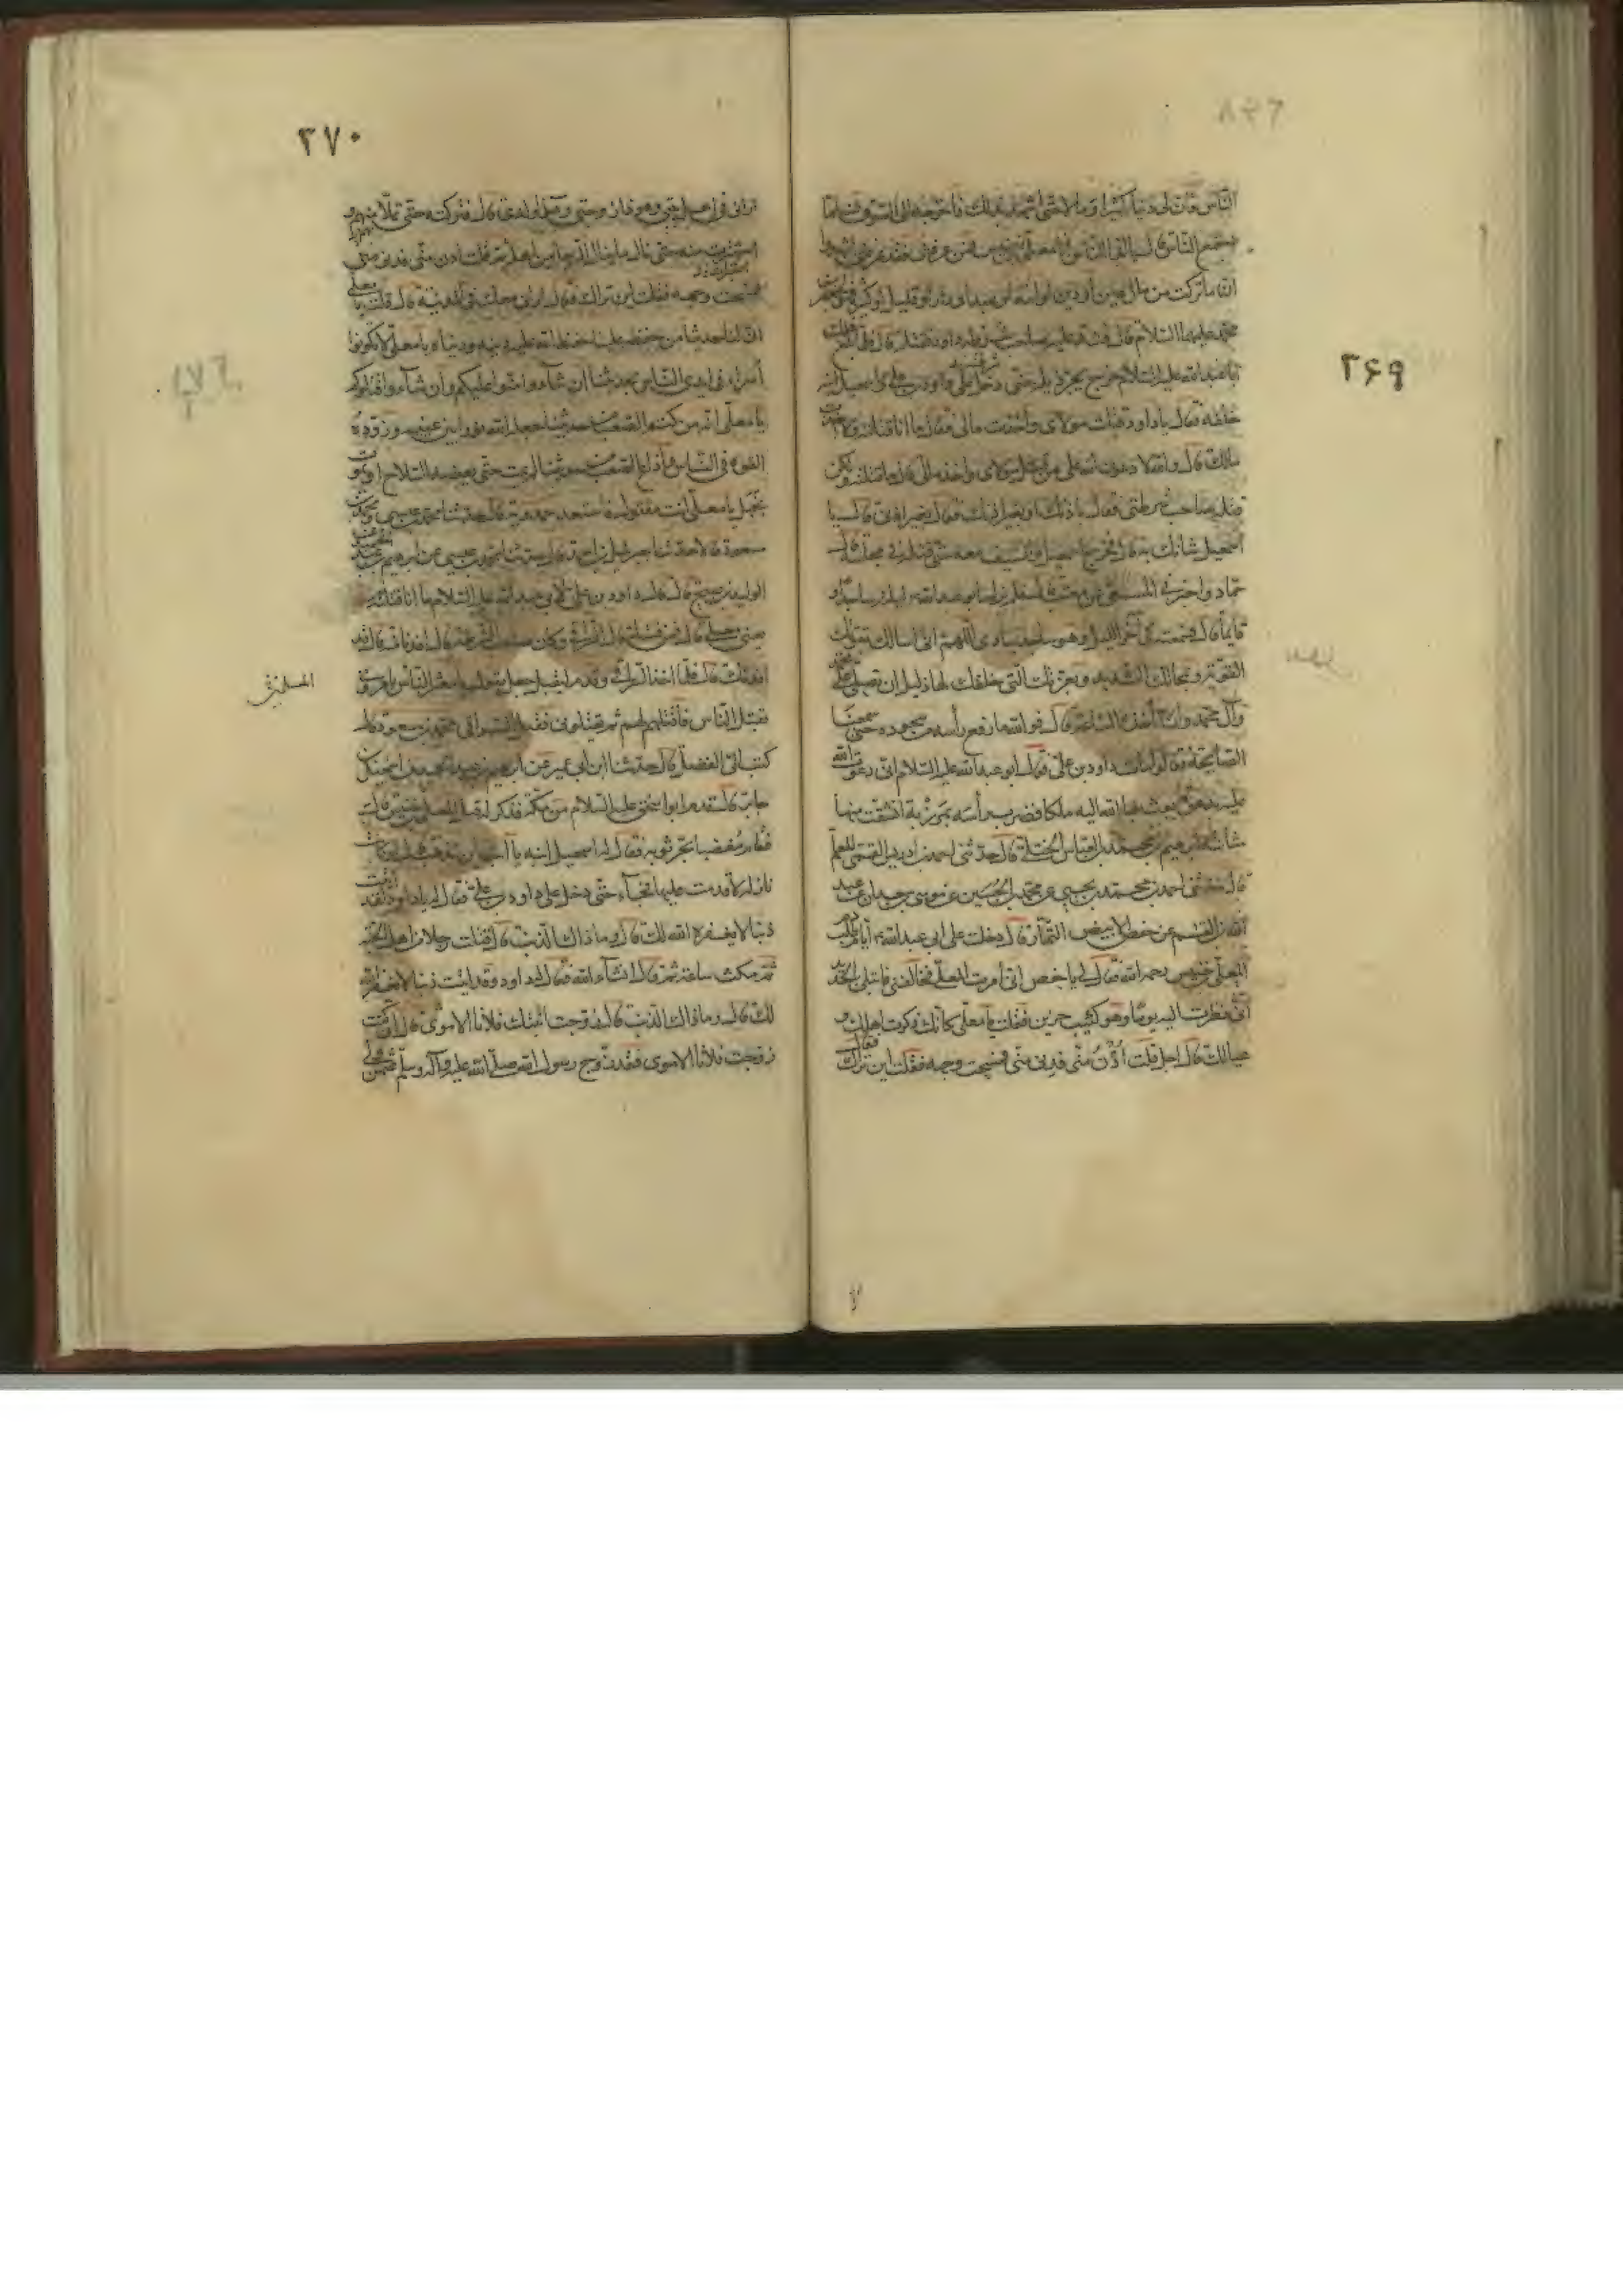 ۳۶۹
الناس فان لى دينا كثيرا ومالا حتى اشهد بذلك فاخرجه الى السوق فلما
اجتمع الناس قال يا ايها الناس انا معلى بن خنيس فمن عرفنى فقد عرفنى اشهدوا
ان ما تركت من مال عين او دين او امة او عبد او دار او قليل او كثير فهو لجعفر بن
محمد عليهما السلام قال فشد عليه صاحب شرطة داود فقتله قال فلما بلغ ذلك
ابا عبد الله عليه السلام خرج يجر ذيله حتى دخل على داود بن على واسمعيل ابنه
خلفه فقال يا داود قتلت مولاى واخذت مالى فقال ما انا قتلته ولا اخذت
مالك قال والله لادعون الله على من قتل مولاى واخذ مالى قال ما قتلته ولكن
قتله صاحب شرطتى فقال باذنك او بغير اذنك فقال بغير اذنى قال يا
اسمعيل شانك به قال فخرج اسمعيل والسيف معه حتى قتله فى مجلسه قال
حماد واخبرنى المسمعى عن معتب قال فلم يزل ابو عبد الله ليله ساجدا و
قايما قال فسمعته فى آخر الليل وهو ساجد ينادى اللهم انى اسالك بقوتك
القوية وبمحالك الشديد وبعزتك التى خلقك لها ذليل ان تصلى على محمد
وآل محمد وان تأخذه الساعة قال فوالله ما رفع رأسه من سجوده حتى سمعنا
الصايحة فقالوا مات داود بن على فقال ابو عبد الله عليه السلام انى دعوت الله
عليه بدعوة بعث بها الله اليه ملكا فضرب رأسه بمرزبة انشقت منها
مثانته ابرهيم بن محمد بن العباس الختلى قال حدثنى احمد بن ادريس القمى المعلم
قال حدثنى احمد بن محمد بن يحيى عن محمد بن الحسين عن موسى بن سعدان عن عبد
الله بن القسم عن حفص الابيض التمار قال دخلت على ابى عبد الله ع ايام طلب
المعلى بن خنيس رحمه الله فقال لى يا حفص انى امرت المعلى فخالفنى فابتلى بالحديد
انى نظرت اليه يوما وهو كئيب حزين فقلت يا معلى كانك ذكرت اهلك و
عيالك قال اجل قلت ادن منى فدنى منى فمسحت وجهه فقلت اين تراك فقال
۳۷۰
ارانى فى اهل بيتى وهو ذا زوجتى وهذا ولدى قال فتركته حتى تملا منهم و
استترت منهم حتى نال ما ينال الرجل من اهله ثم قلت ادن منى فدنى منى
فمسحت وجهه فقلت اين تراك فقال ارانى معك فى المدينة قال قلت يا معلى
ان لنا حديثا من حفظه علينا حفظ الله عليه دينه ودنياه يا معلى لا تكونوا
اسراء فى ايدى الناس بحديثنا ان شاؤا امنوا عليكم وان شاؤا قتلوكم
يا معلى انه من كتم الصعب من حديثنا جعل الله نورا بين عينيه وزوده
القوة فى الناس ومن اذاع الصعب من حديثنا لم يمت حتى يعضه السلاح او يموت
بخبل يا معلى انت مقتول فاستعد حمدويه قال حدثنا محمد بن عيسى ومحمد بن
مسعود قالا حدثنا جبرئيل بن احمد قال حدثنا محمد بن عيسى عن ابرهيم بن عبد الحميد عن
الوليد بن صبيح قال قال داود بن على لابى عبد الله عليه السلام ما انا قتلته
يعنى معلى قال فمن قتله قال السيرافى وكان صاحب شرطته قال اقدنا منه قال قد
اقدتك قال فلما اخذ السيرافى وقدم ليقتل جعل يقول يا معشر الناس يامرونى
بقتل الناس فاقتلهم لهم ثم يقتلونى فقتل السيرافى محمد بن مسعود قال
كتب الى الفضل قال حدثنا ابن ابى عمير عن ابرهيم بن عبد الحميد عن اسمعيل بن
جابر قال قدم ابو اسحق عليه السلام من مكة فذكر له قتل المعلى بن خنيس قال
فقام مغضبا يجر ثوبه فقال له اسمعيل ابنه يا ابه اين تذهب قال لو كانت
نازلة لاقدمت عليها فجاء حتى دخل على داود بن على فقال له يا داود لقد اتيت
ذنبا لا يغفره الله لك قال وما ذاك الذنب قال قتلت رجلا من اهل الجنة
ثم مكث ساعة ثم قال ان شاء الله فقال له داود وقد اتيت ذنبا لا يغفره الله
لك قال وما ذاك الذنب قال زوجت ابنتك فلانا الاموى قال ان كنت
زوجت فلانا الاموى فقد زوج رسول الله صلى الله عليه وآله وسلم عثمن ولى